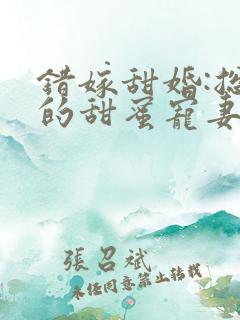 錯嫁甜婚:
的甜蜜寵妻
張召斌
未任同意禁止转载